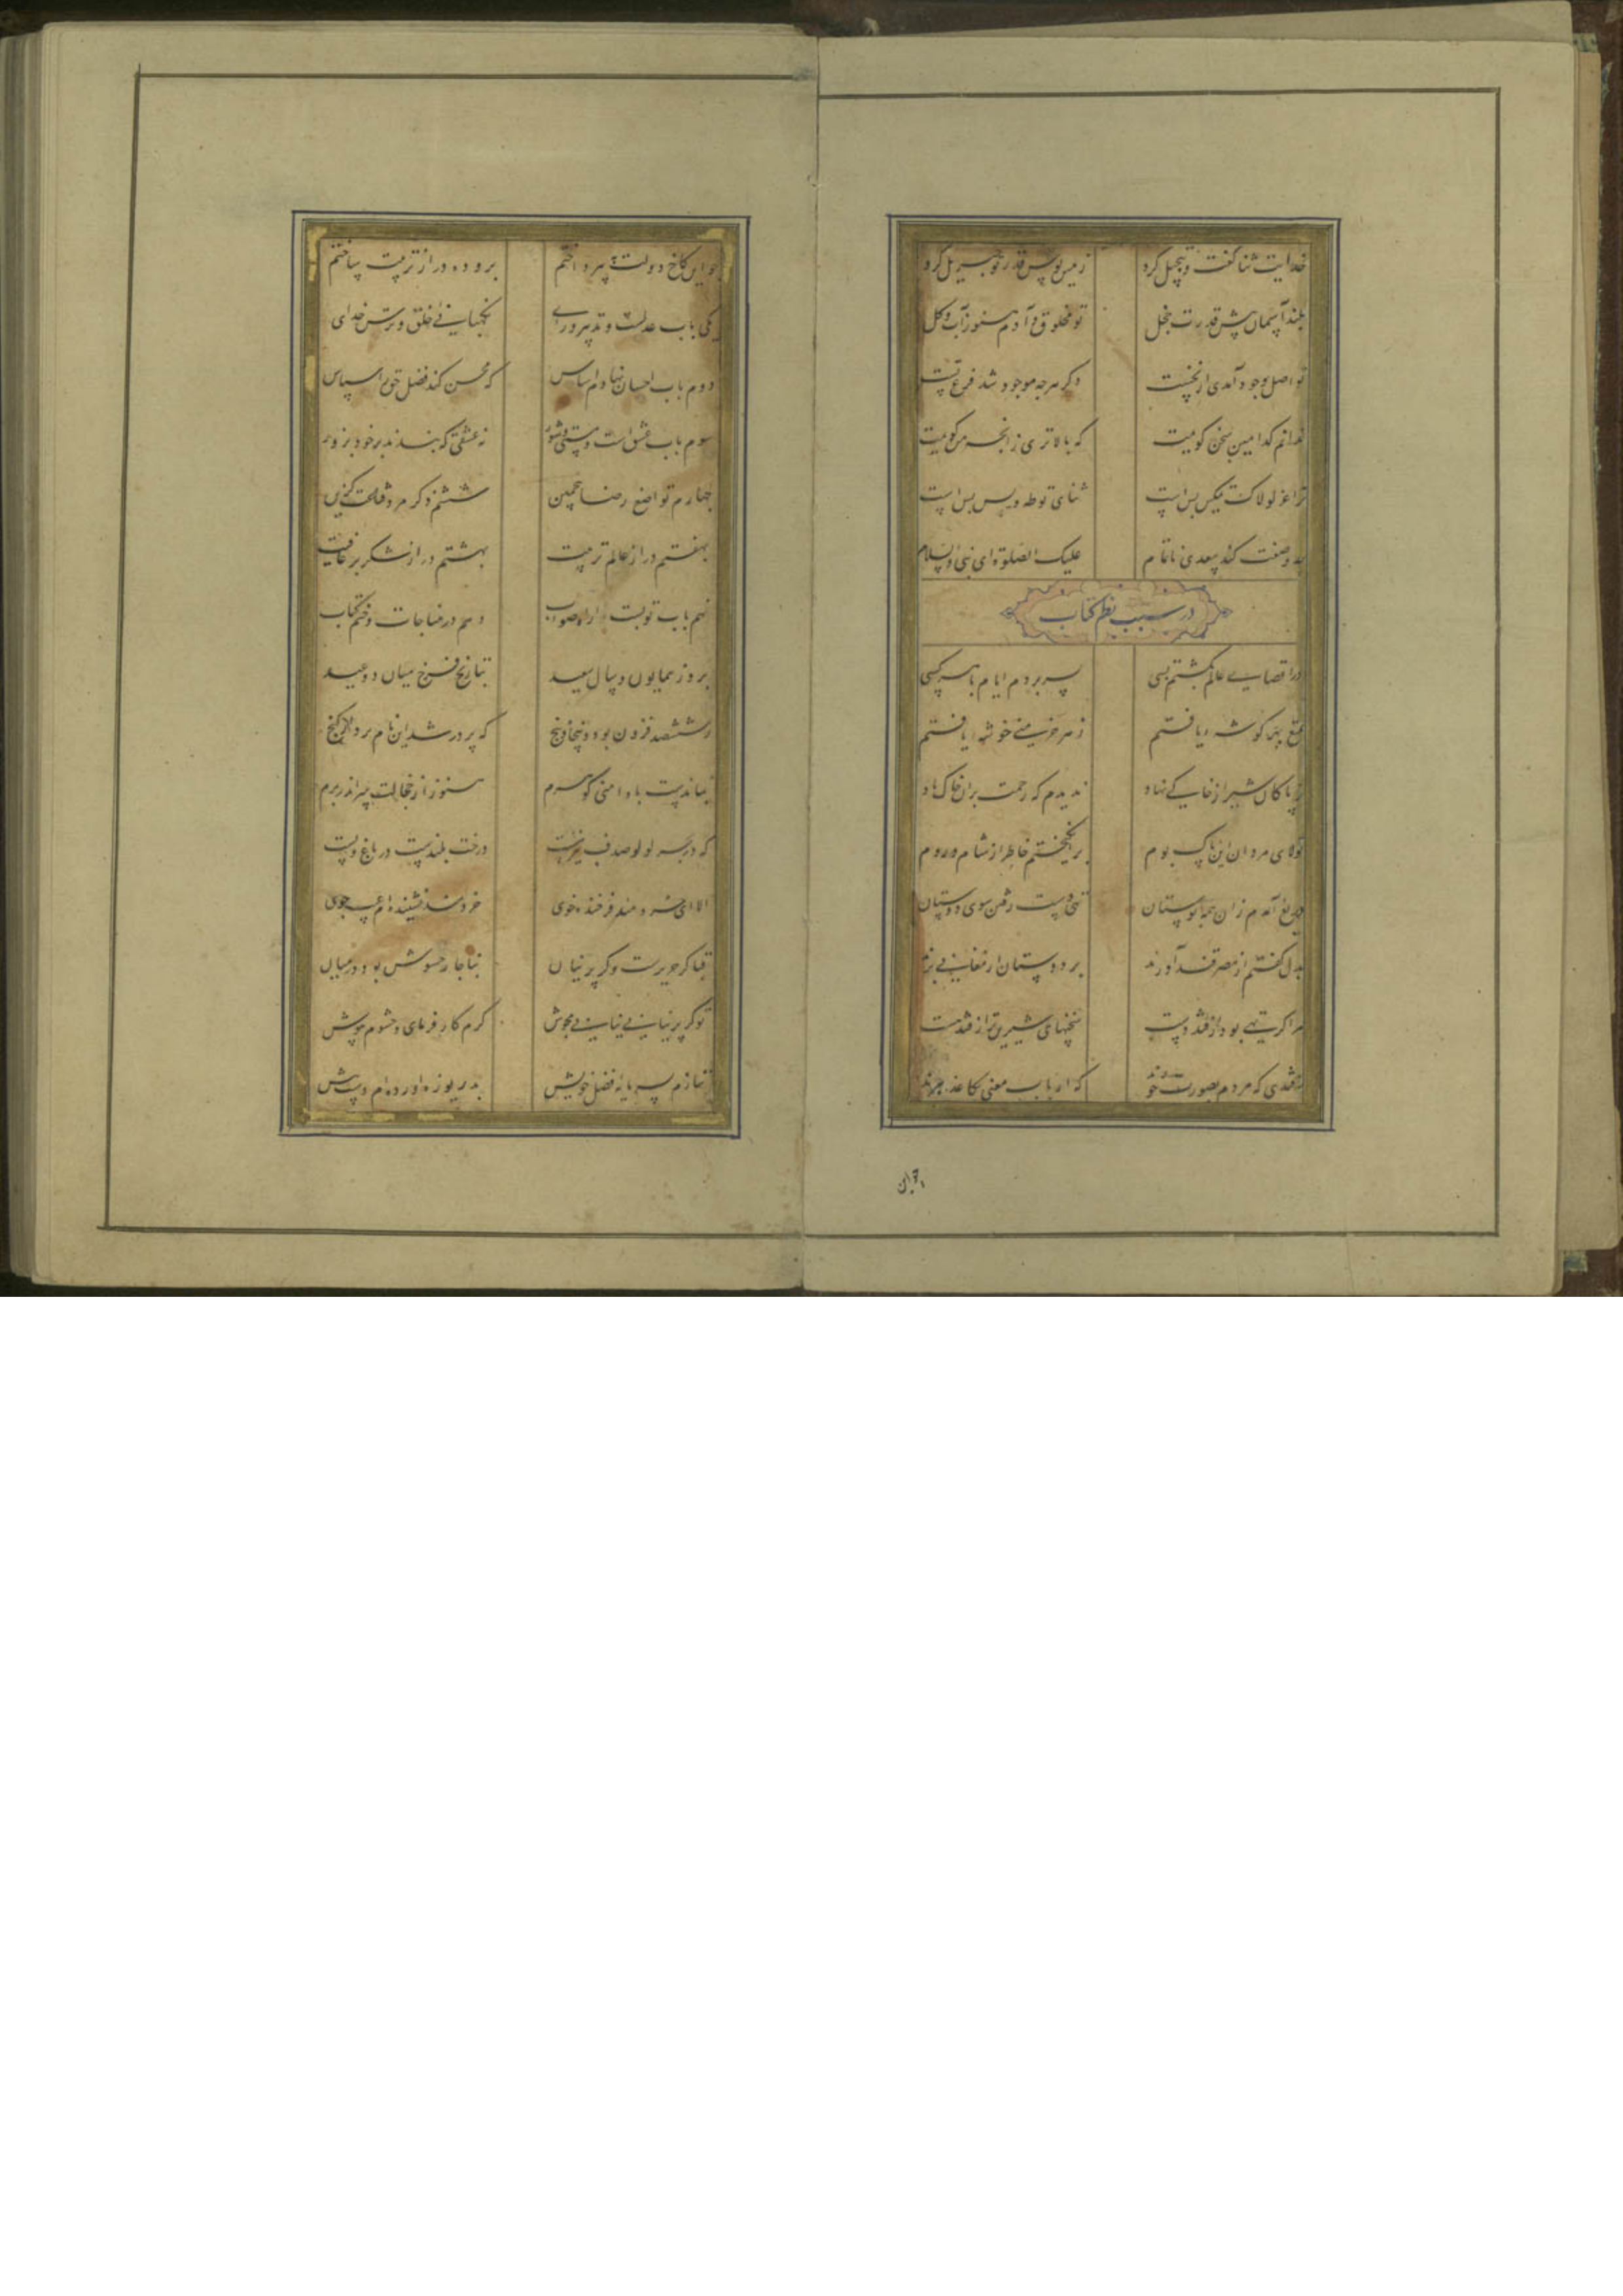 خدایت ثنا گفت و تبجیل کرد زمین بوس قدر تو جبریل کرد
بلند آسمان پیش قدرت خجل تو مخلوق و آدم هنوز آب و گل
تو اصل وجود آمدی از نخست دگر هرچه موجود شد فرع تست
ندانم کدامین سخن گویمت که بالاتری زانچه من گویمت
ترا عز لولاک تمکین بس است ثنای تو طه و یس بس است
چه وصفت کند سعدی ناتمام علیک الصلوة ای نبی والسلام
در سبب نظم کتاب
در اقصای عالم بگشتم بسی بسر بردم ایام با هر کسی
تمتع بهر گوشه یافتم ز هر خرمنی خوشه یافتم
چو پاکان شیراز خاکی نهاد ندیدم که رحمت بران خاک باد
تولای مردان این پاک بوم برانگیختم خاطر از شام و روم
دریغ آمدم زان همه بوستان تهی دست رفتن سوی دوستان
بدل گفتم از مصر قند آورند بر دوستان ارمغانی برند
مرا گر تهی بود از قند دست سخنهای شیرین تر از قند هست
نه قندی که مردم بصورت خورند که ارباب معنی بکاغذ برند
چو این
چو این کاخ دولت بپرداختم برو ده در از تربیت ساختم
یکی باب عدلست و تدبیر و رای نگهبانی خلق و ترس خدای
دوم باب احسان نهادم اساس که محسن کند فضل حق را سپاس
سوم باب عشق است و مستی و شور نه عشقی که بندند بر خود بزور
چهارم تواضع رضا پنجمین ششم ذکر مرد قناعت گزین
بهفتم در از عالم تربیت بهشتم در از شکر بر عافیت
نهم باب توبست و راه صواب دهم در مناجات و ختم کتاب
بروز همایون و سال سعید بتاریخ فرخ میان دو عید
ز ششصد فزون بود و پنجاه و پنج که پر در شد این نام بردار گنج
بماندست با دامنی گوهرم هنوز از خجالت سر اندر برم
که در بحر لولو صدف نیز هست درخت بلندست در باغ و پست
الا ای خردمند فرخنده خوی خردمند نشنیده‌ام عیب جوی
قبا گر حریرست و گر پرنیان بناچار حشوش بود در میان
تو گر پرنیانی نیابی مجوش کرم کار فرمای و حشوم بپوش
ننازم بسرمایه فضل خویش بدریوزه آورده‌ام دست پیش